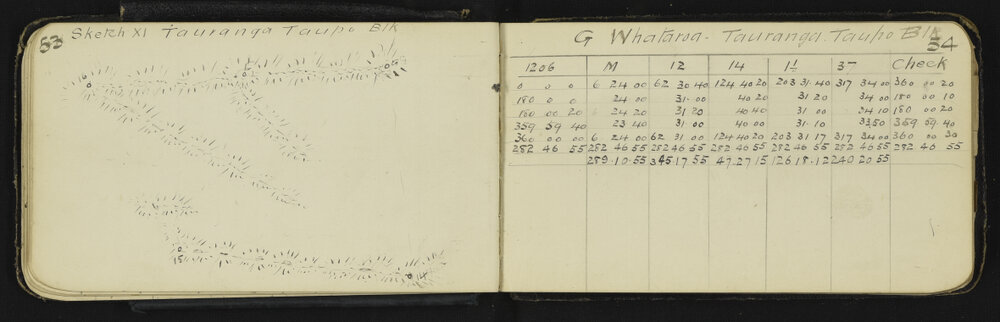 53 Sketch XI Tauranga Taupo Blk
G Whataroa. Tauranga. Taupo Blk 54
1206 M 12 14 37 Check
0 0 0 6 24 00 62 30 40 124 40 20 203 31 40 317 34 00 360 00 20
180 0 0 24 00 31.00 40 20 31 20 34 00 180 00 10
180 00 20 24 20 31 20 40 40 31 00 34 10 180 00 20
359 59 40 23 40 31 00 40 00 31.10 33 50 359 59 40
360 00 00 6 24 00 62 31 00 124 40 20 203 31 17 317 34 00 360 00 30
282 46 55 282 46 55 282 46 55 282 46 55 282 46 55 282 46 55 282 46 55
289.10.55 345.17 55 47.27 15 126 18.12 240 20 55